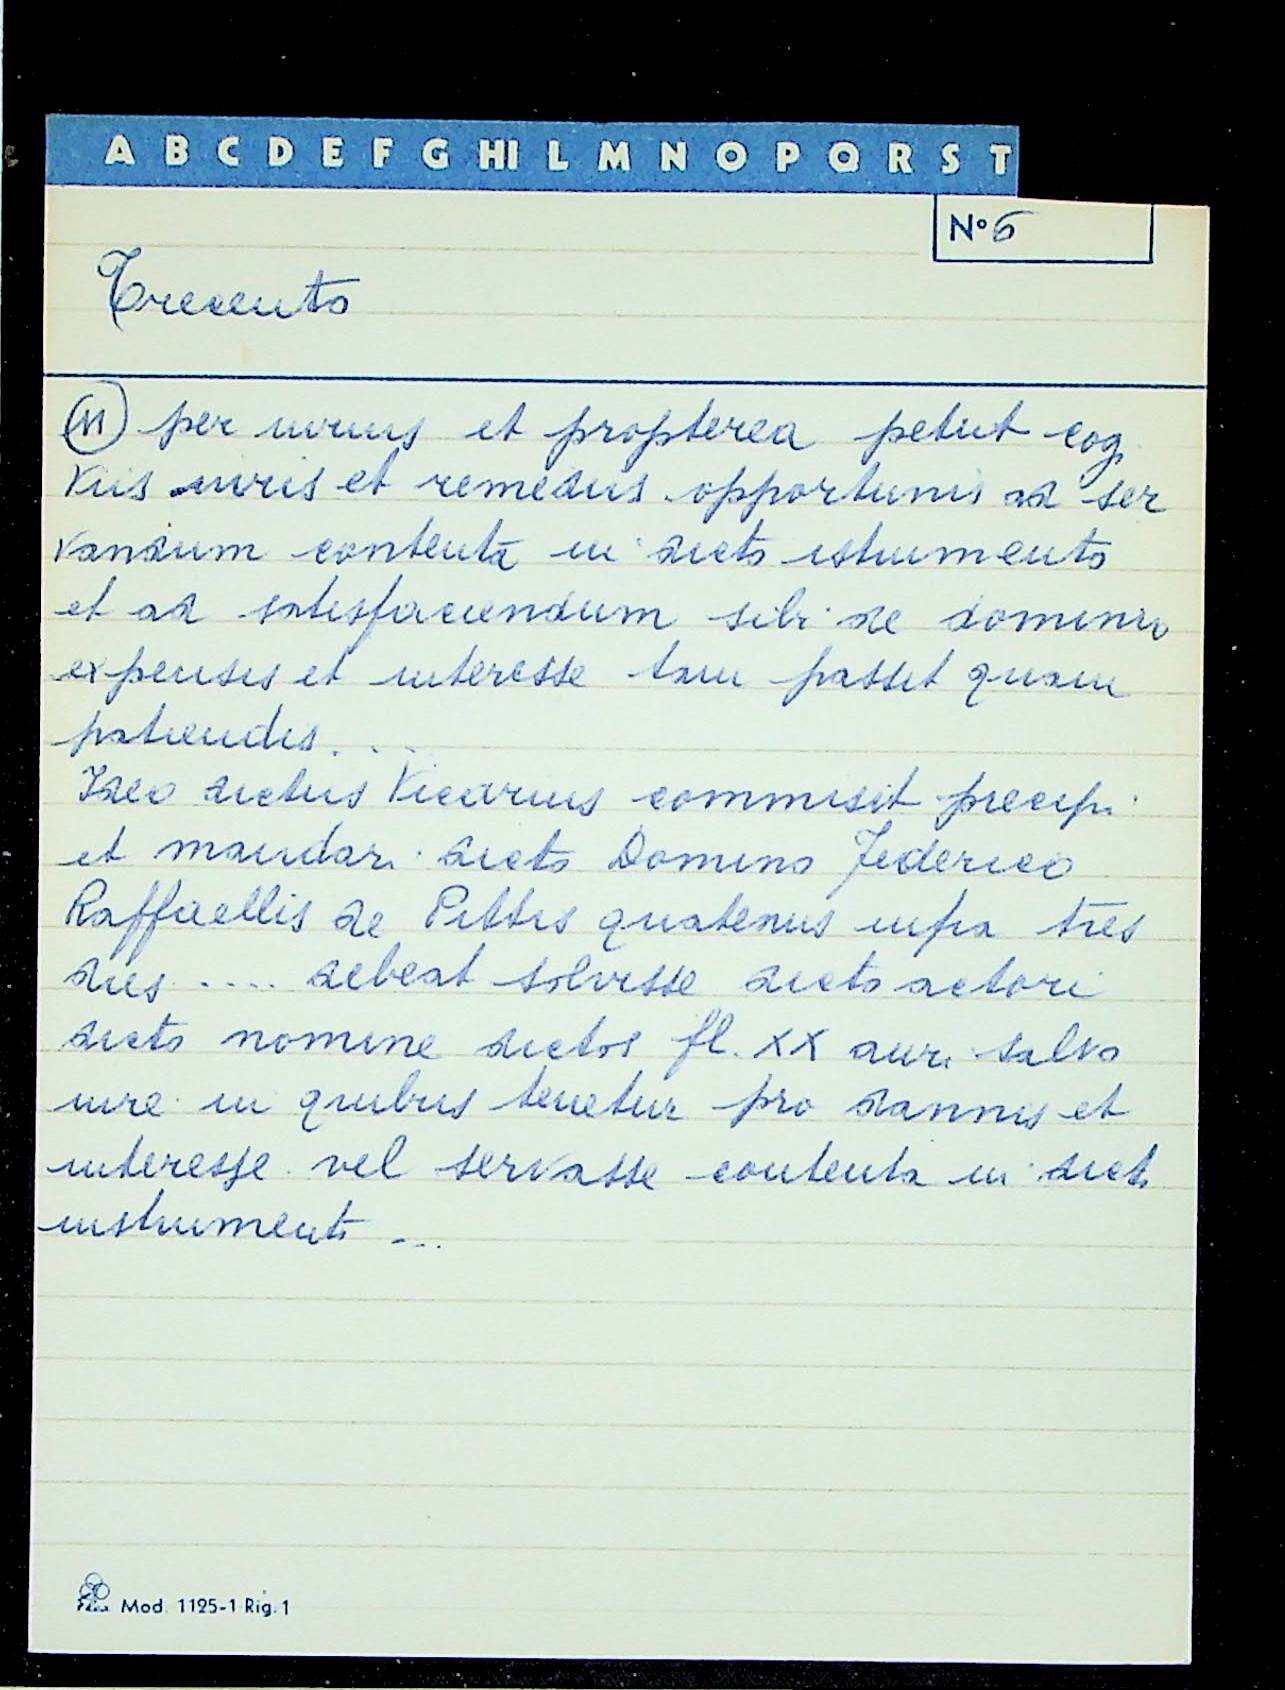 A B C D E F G HI L M N O P Q R S T
N° 6
Trecento
per unius et propterea petut cog
viis iuris et remediis opportunis ad ser
vandum contenta in dicto istrumento
et ad satisfaciendum sibi de
expensis et interesse tam passit quam
patiendis....
Ideo dictus Vicarius commisit precipi
et mandari dicto Domino Federico
Raffaellis de Pittis quatenus infra tres
dies .... debeat solvisse dicto actori
dicto nomine dictos fl. XX auri salvo
iure in quibus tenetur pro dannis et
interesse vel servasse contenta in dicto
instrumenti ...
Mod. 1125-1 Rig. 1